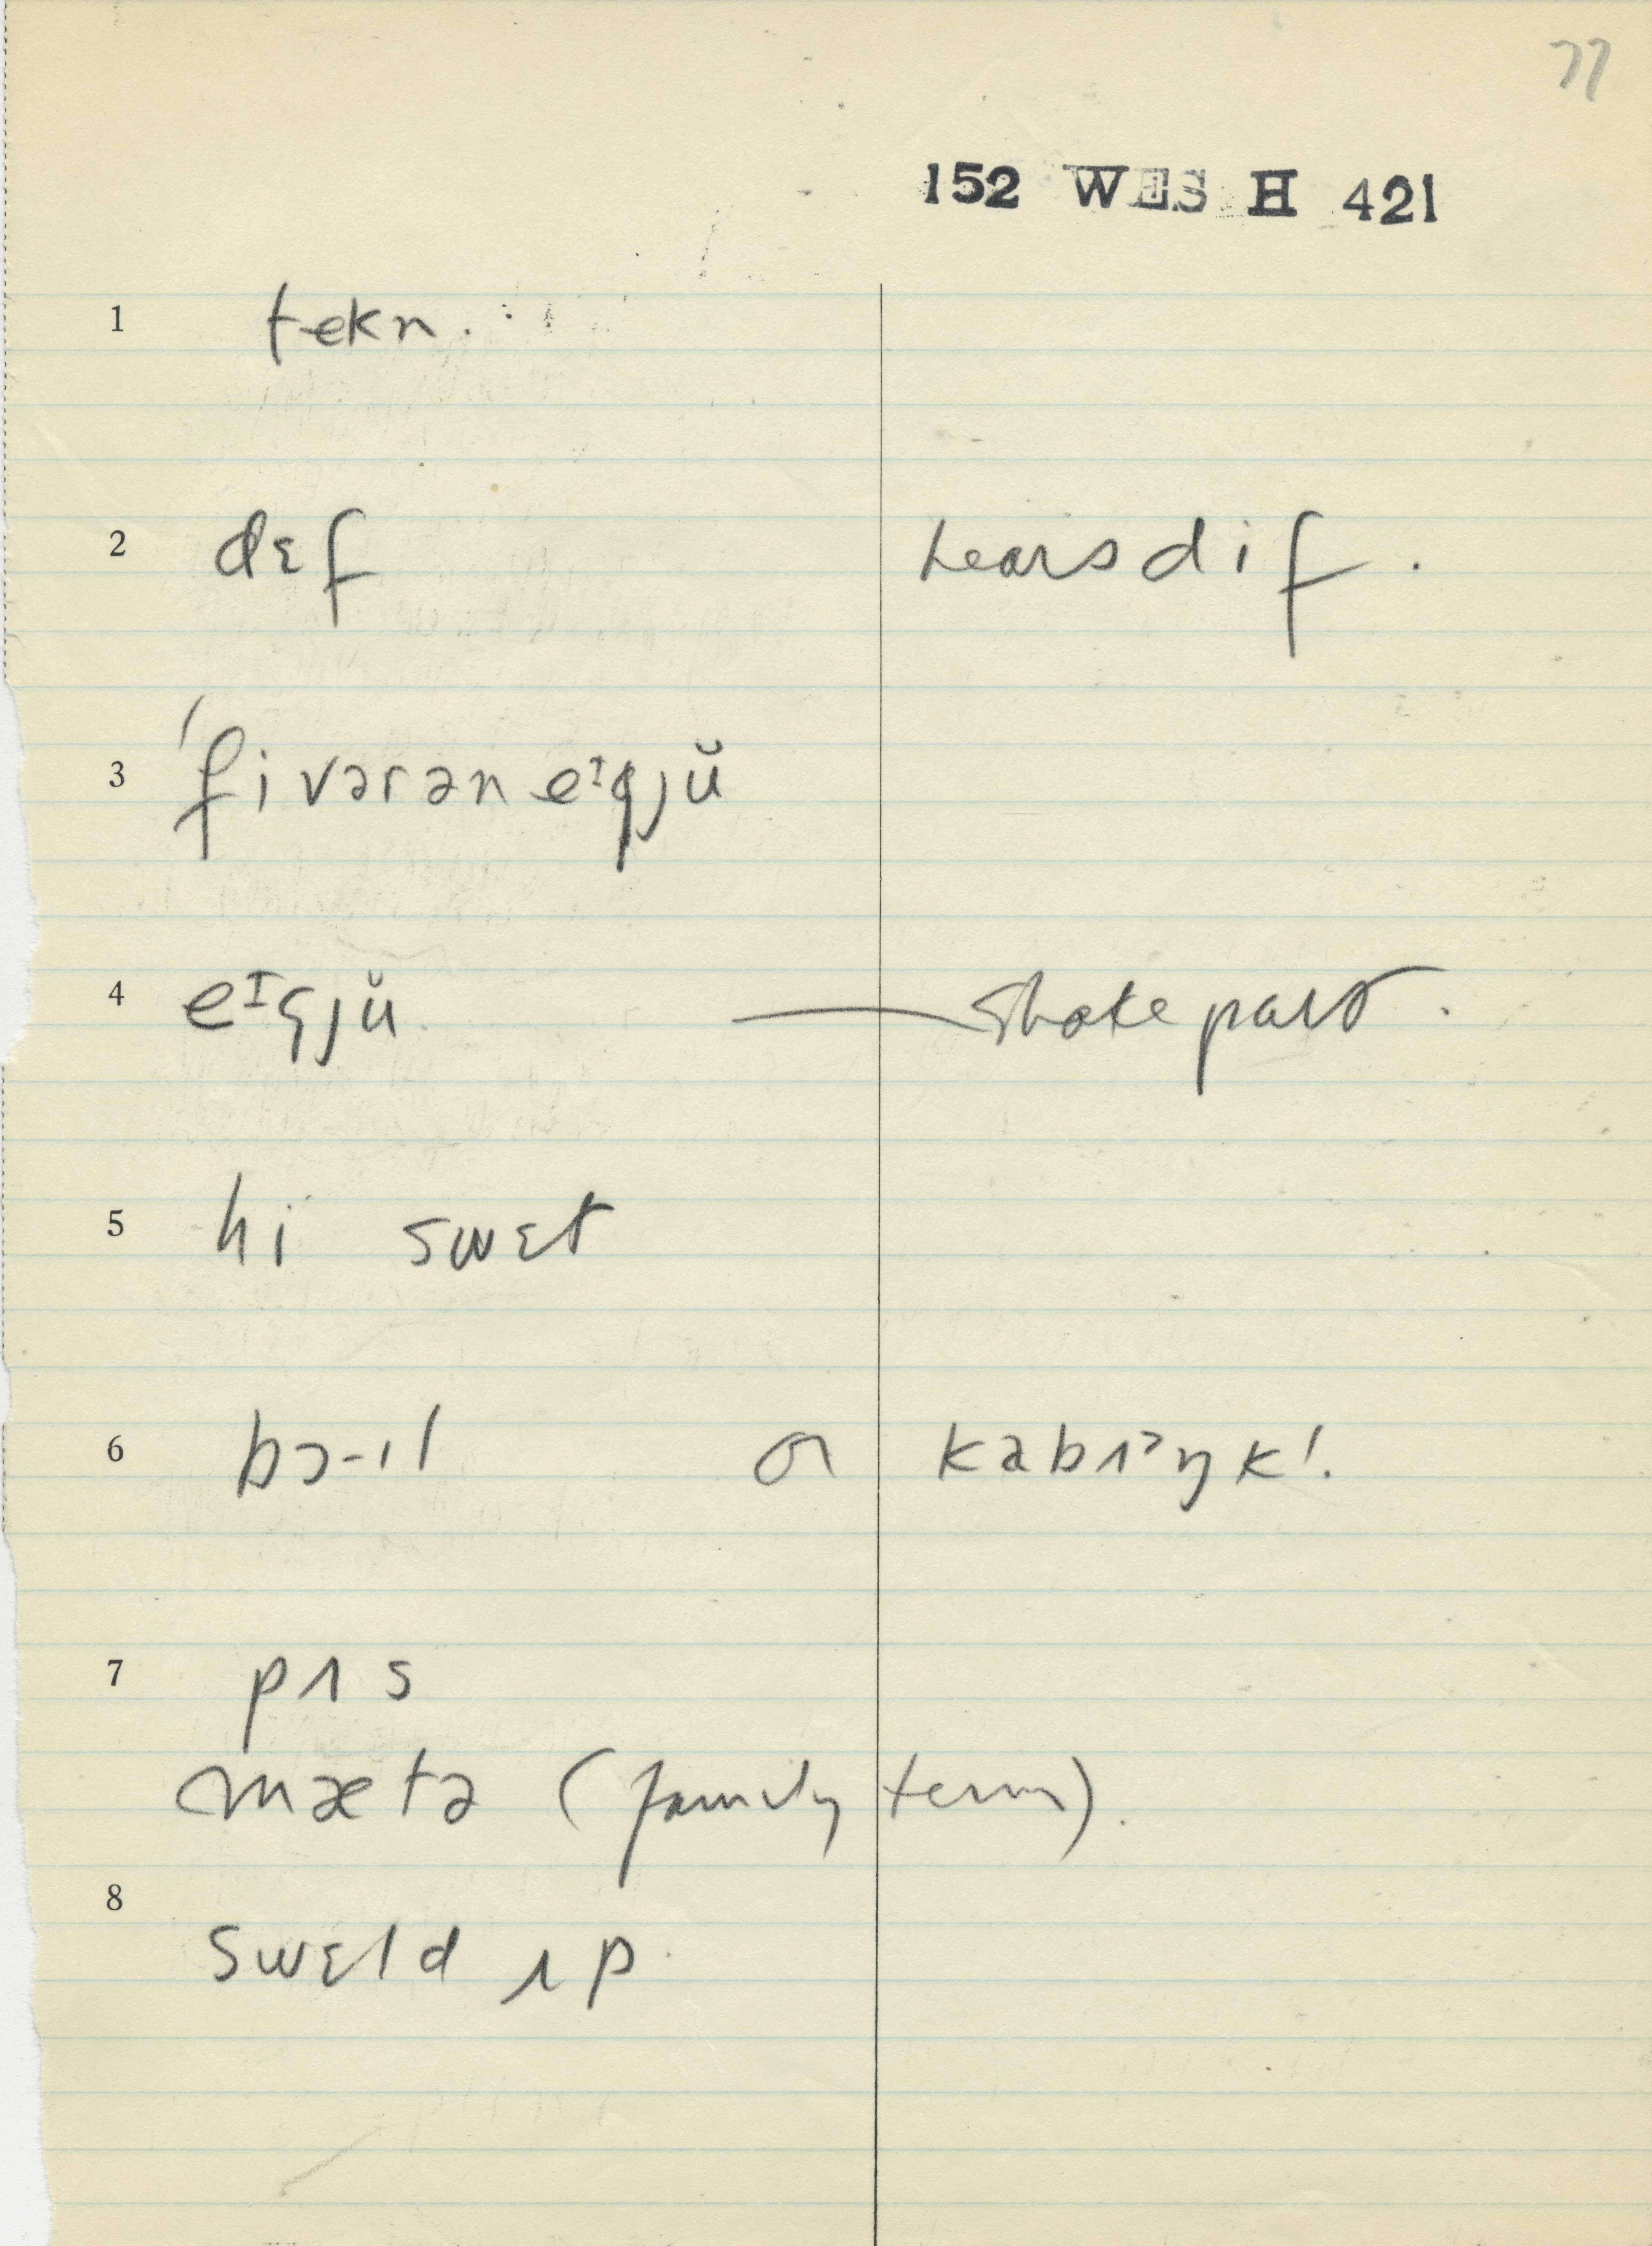 77
152 WES H 421
1 tekn.
2 dɛf hears dif.
3 'fivərəneᶦgjŭ
4 eᶦgjŭ — Shake part.
5 hi swɛt
6 bɔ-ɪl or kabʌᵊŋk!.
7 pʌs
mætə (family term).
8
swɛld ʌp